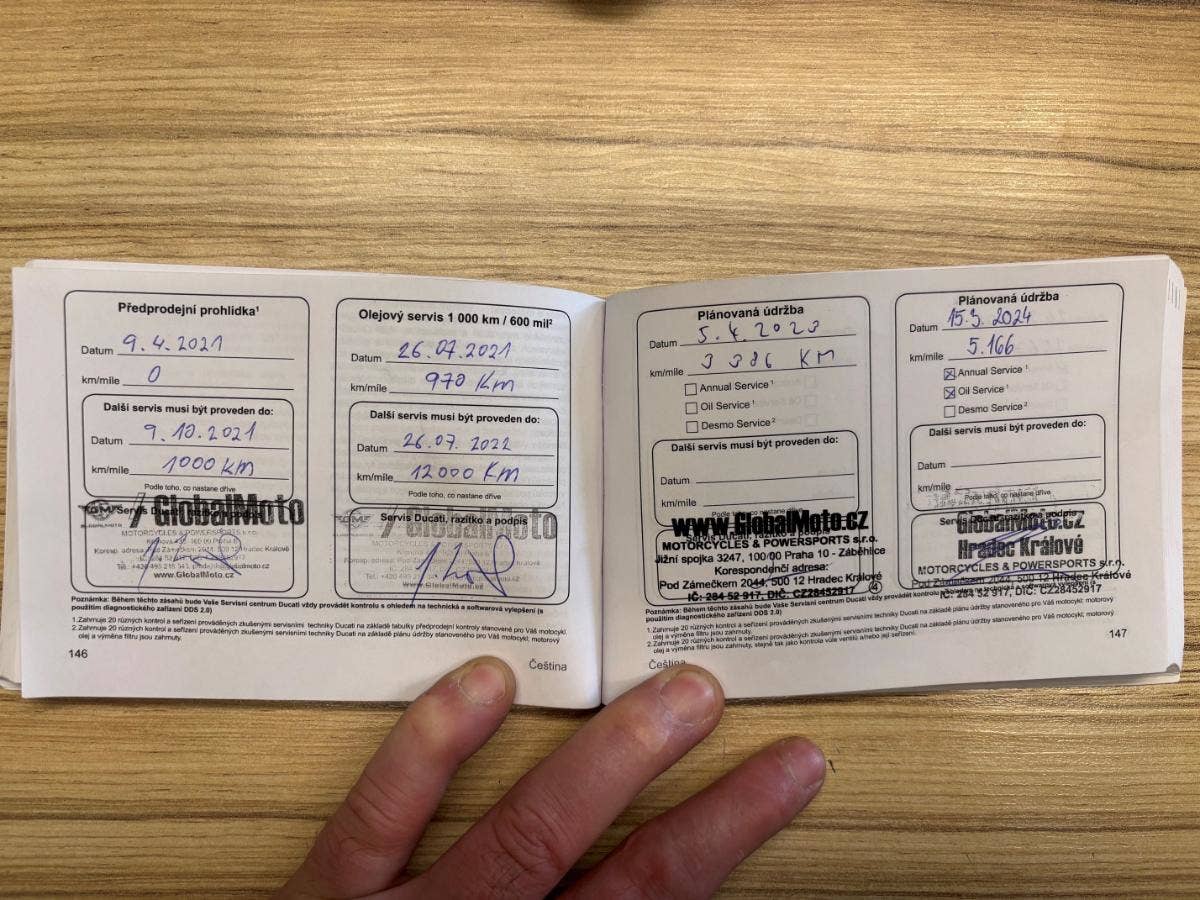 Předprodejní prohlídka¹
Datum 9.4.2021
km/míle 0
Další servis musí být proveden do:
Datum 9.10.2021
km/míle 1000 KM
Podle toho, co nastane dříve
Servis Ducati,
GlobalMoto
MOTORCYCLES & POWERSPORTS s.r.o.
www.GlobalMoto.cz
Olejový servis 1 000 km / 600 mil²
Datum 26.07.2021
km/míle 970 KM
Další servis musí být proveden do:
Datum 26.07. 2022
km/míle 12000 KM
Podle toho, co nastane dříve
Servis Ducati, razítko a podpis
GlobalMoto
www.GlobalMoto.cz
Poznámka: Během těchto zásahů bude Vaše Servisní centrum Ducati vždy provádět kontrolu s ohledem na technická a softwarová vylepšení (s
použitím diagnostického zařízení DDS 2.0)
1.Zahrnuje 20 různých kontrol a seřízení prováděných zkušenými servisními techniky Ducati na základě tabulky předprodejní kontroly stanovené pro Váš motocykl.
2.Zahrnuje 20 různých kontrol a seřízení prováděných zkušenými servisními techniky Ducati na základě plánu údržby stanoveného pro Váš motocykl; motorový
olej a výměna filtru jsou zahrnuty.
146
Čeština
Plánovaná údržba
Datum 5.4.2023
km/míle 3 386 KM
Annual Service¹
Oil Service¹
Desmo Service²
Další servis musí být proveden do:
Datum
km/míle
Podle toho, co nastane dříve
www.GlobalMoto.cz
Servis Ducati, razítko a podpis
MOTORCYCLES & POWERSPORTS s.r.o.
Jižní spojka 3247, 100/00 Praha 10 - Záběhlice
Korespondenčí adresa:
Pod Zámečkem 2044, 500 12 Hradec Králové
IČ: 284 52 917, DIČ. CZ28452917 ④
Plánovaná údržba
Datum 15.3.2024
km/míle 5.166
☒ Annual Service¹
☒ Oil Service¹
Desmo Service²
Další servis musí být proveden do:
Datum
km/míle
Podle toho, co nastane dříve
razítko a podpis
GlobalMoto.CZ
Hradec Králové
MOTORCYCLES & POWERSPORTS s.r.o.
Pod Zámečkem 2044, 500 12 Hradec Králové
IČ: 284 52 917, DIČ: CZ28452917
Poznámka: Během těchto zásahů bude Vaše Servisní centrum Ducati vždy provádět kontrolu s ohledem na technická a softwarová vylepšení (s
použitím diagnostického zařízení DDS 2.0)
1.Zahrnuje 20 různých kontrol a seřízení prováděných zkušenými servisními techniky Ducati na základě plánu údržby stanoveného pro Váš motocykl; motorový
olej a výměna filtru jsou zahrnuty.
2.Zahrnuje 20 různých kontrol a seřízení prováděných zkušenými servisními techniky Ducati na základě plánu údržby stanoveného pro Váš motocykl; motorový
olej a výměna filtru jsou zahrnuty, stejně tak jako kontrola vůle ventilů a/nebo její seřízení.
Čeština
147